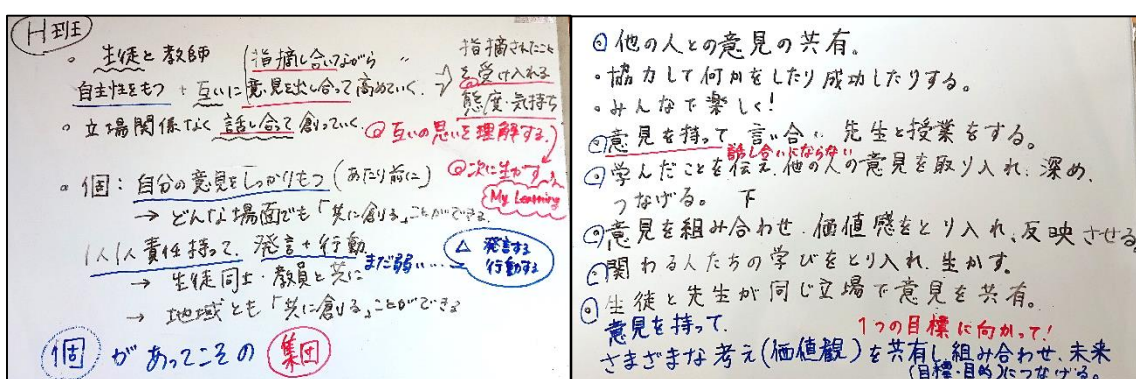 H班
。生徒と教師
指摘し合いながら
指摘されたこと
を受け入れる
態度・気持ち
自主性をもつ + 互いに意見を出し合って高めていく.
。立場関係なく 話し合って 創っていく.
◎互いの思いを理解する.
◎次に生かす
My Learning
。個:自分の意見をしっかりもつ(あたり前に)
→ どんな場面でも「共に創る」ことができる.
1人1人責任持って、発言+行動
まだ弱い…
△ 発言する
行動する
→ 生徒同士・教員と共に
→ 地域とも「共に創る」ことができる
個 があってこその 集団
◎他の人との意見の共有。
・協力して何かをしたり成功したりする。
・みんなで楽しく!
◎意見を持って、言い合い 先生と授業をする。
話し合いにならない
◎学んだことを伝え、他の人の意見を取り入れ、深め、
つなげる。 下
◎意見を組み合わせ、価値感をとり入れ、反映させる
◎関わる人たちの学びをとり入れ、生かす。
◎生徒と先生が同じ立場で意見を共有。
意見を持って、
1つの目標に向かって!
さまざまな考え(価値観)を共有し、組み合わせ、未来
(目標・目的)につなげる。